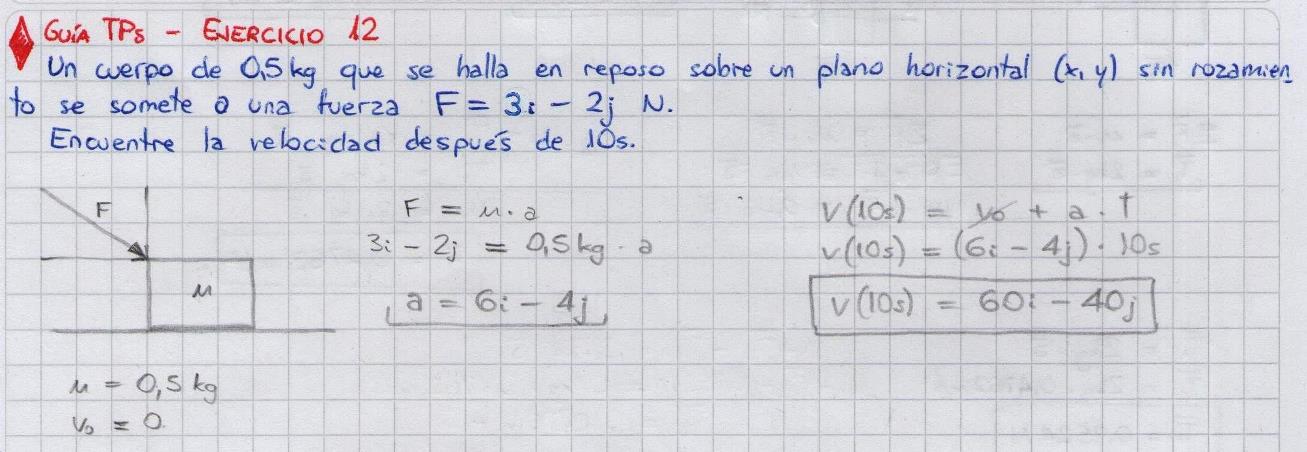 GUÍA TPs - EJERCICIO 12
Un cuerpo de 0,5 kg que se halla en reposo sobre un plano horizontal (x, y) sin rozamien
to se somete a una fuerza F = 3i - 2j N.
Encuentre la velocidad después de 10s.
F
M
F = M . a
3i - 2j = 0,5 kg . a
a = 6i - 4j
M = 0,5 kg
V0 = 0
V(10s) = V0 + a . t
V(10s) = (6i - 4j) . 10s
V(10s) = 60i - 40j